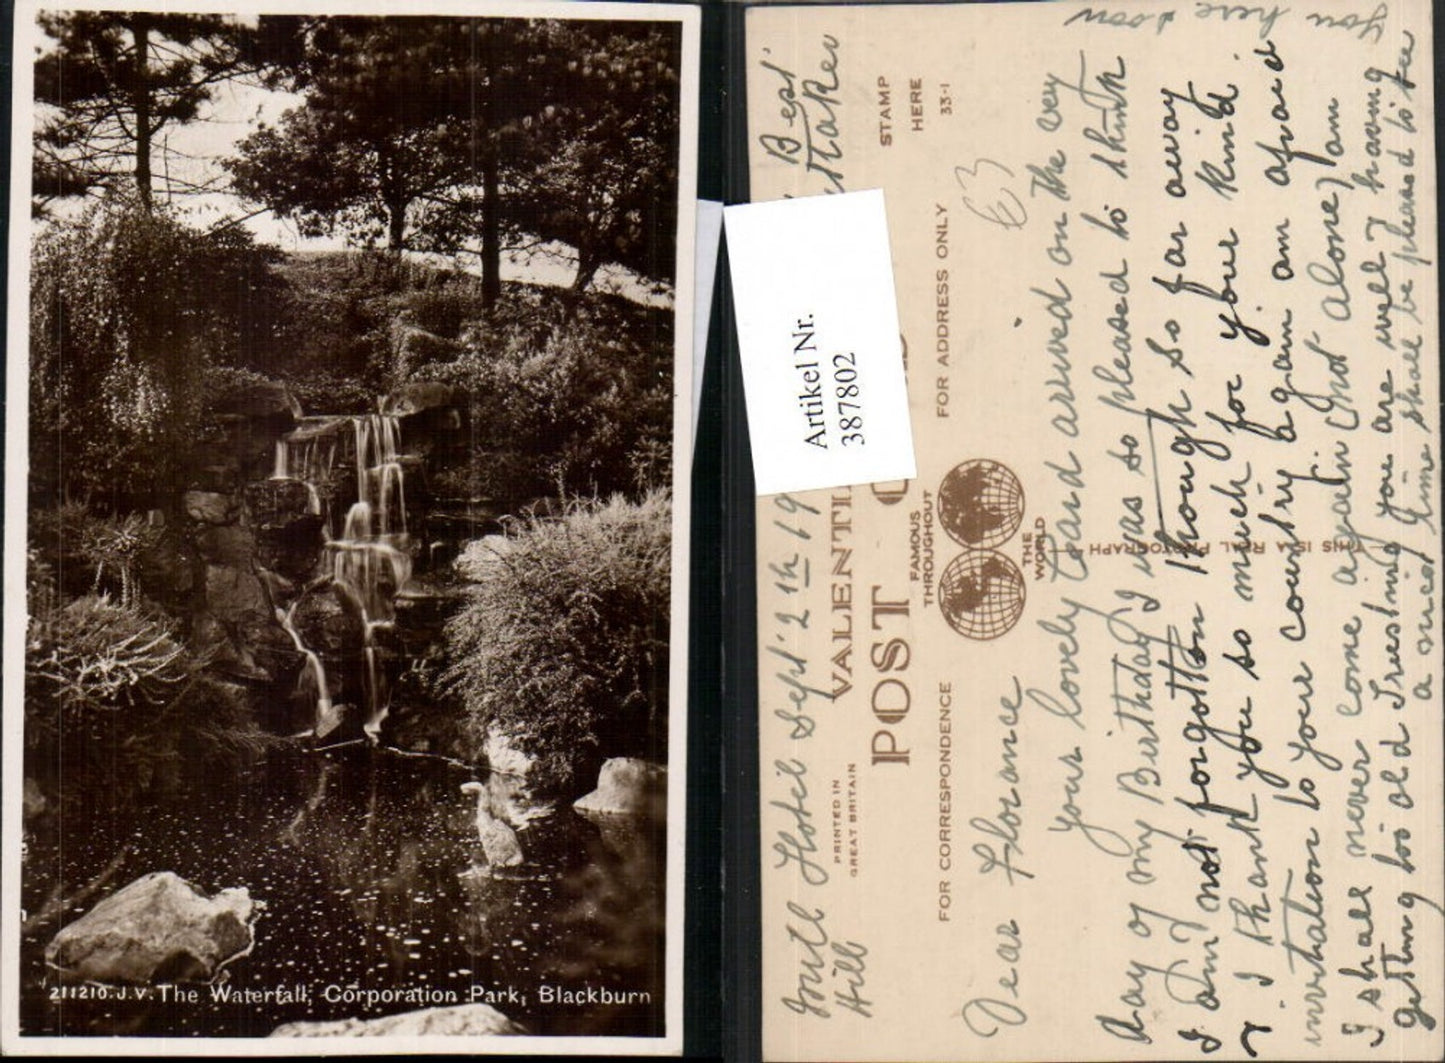 211210.J.V. The Waterfall, Corporation Park, Blackburn
Artikel Nr.
387802
Hotel Sept' 2th 19
Hill
Best
VALENTI
POST
PRINTED IN
GREAT BRITAIN
FAMOUS
THROUGHOUT
THE
WORLD
FOR CORRESPONDENCE
FOR ADDRESS ONLY
STAMP
HERE
33-1
THIS IS A REAL PHOTOGRAPH
£3
Dear Florance
your lovely Card arrived on the very
day of my Birthday I was so pleased to think
I am not forgotton though so far away
I thank you so much for your kind
invitation to your country again am afraid
I shall never come again (not alone) am
getting too old Trusting you are well & having
a nice time shall be pleased to see
you here soon